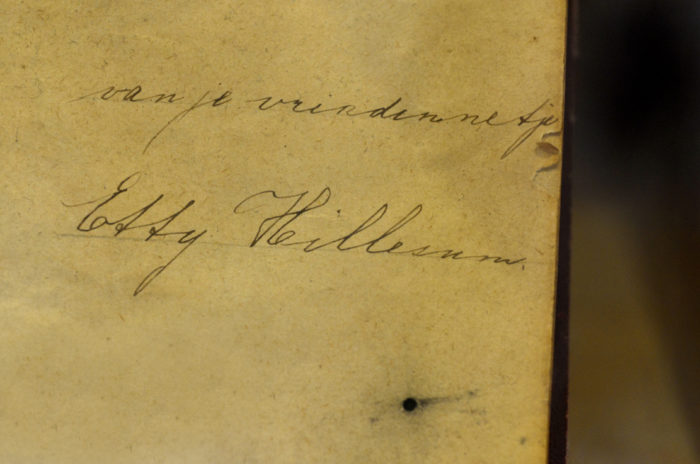 van je vriendinnetje
Etty Hillesum.